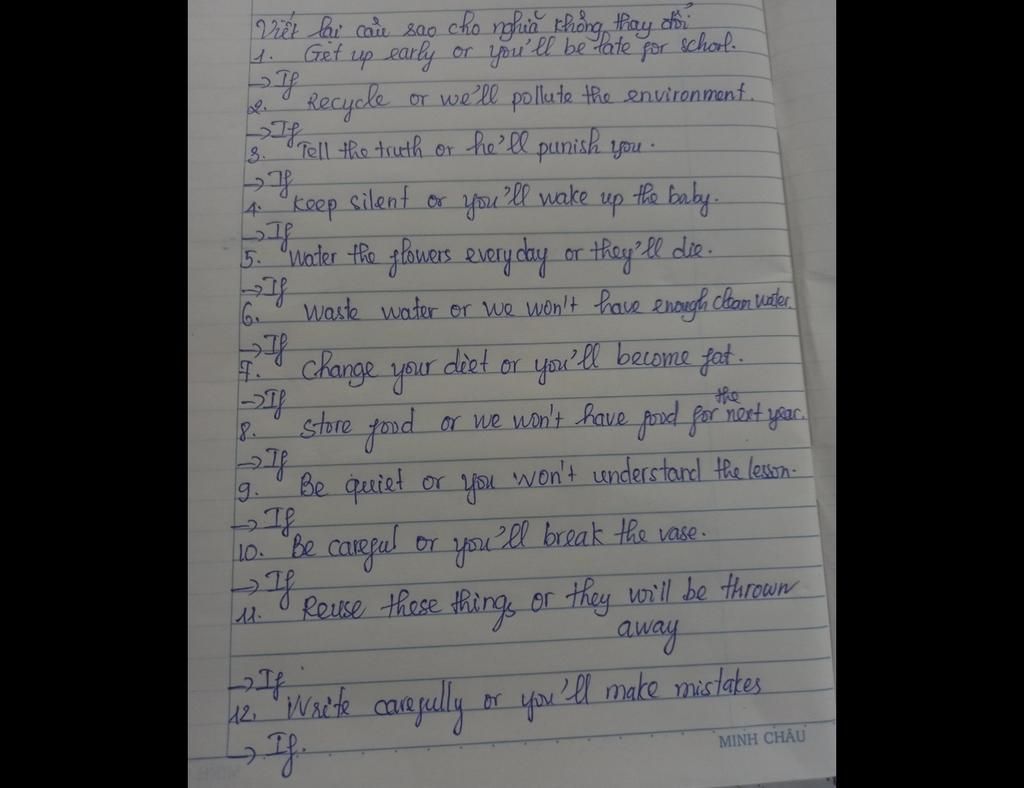 Viết lại câu sao cho nghĩa không thay đổi
1. Get up early or you'll be late for school.
→ If
2. Recycle or we'll pollute the environment.
→ If
3. Tell the truth or he'll punish you.
→ If
4. Keep silent or you'll wake up the baby.
→ If
5. Water the flowers everyday or they'll die.
→ If
6. Waste water or we won't have enough clean water.
→ If
7. Change your diet or you'll become fat.
→ If
8. Store food or we won't have food for the next year.
→ If
9. Be quiet or you won't understand the lesson.
→ If
10. Be careful or you'll break the vase.
→ If
11. Reuse these things or they will be thrown
away
→ If
12. Write carefully or you'll make mistakes
→ If.
MINH CHÂU